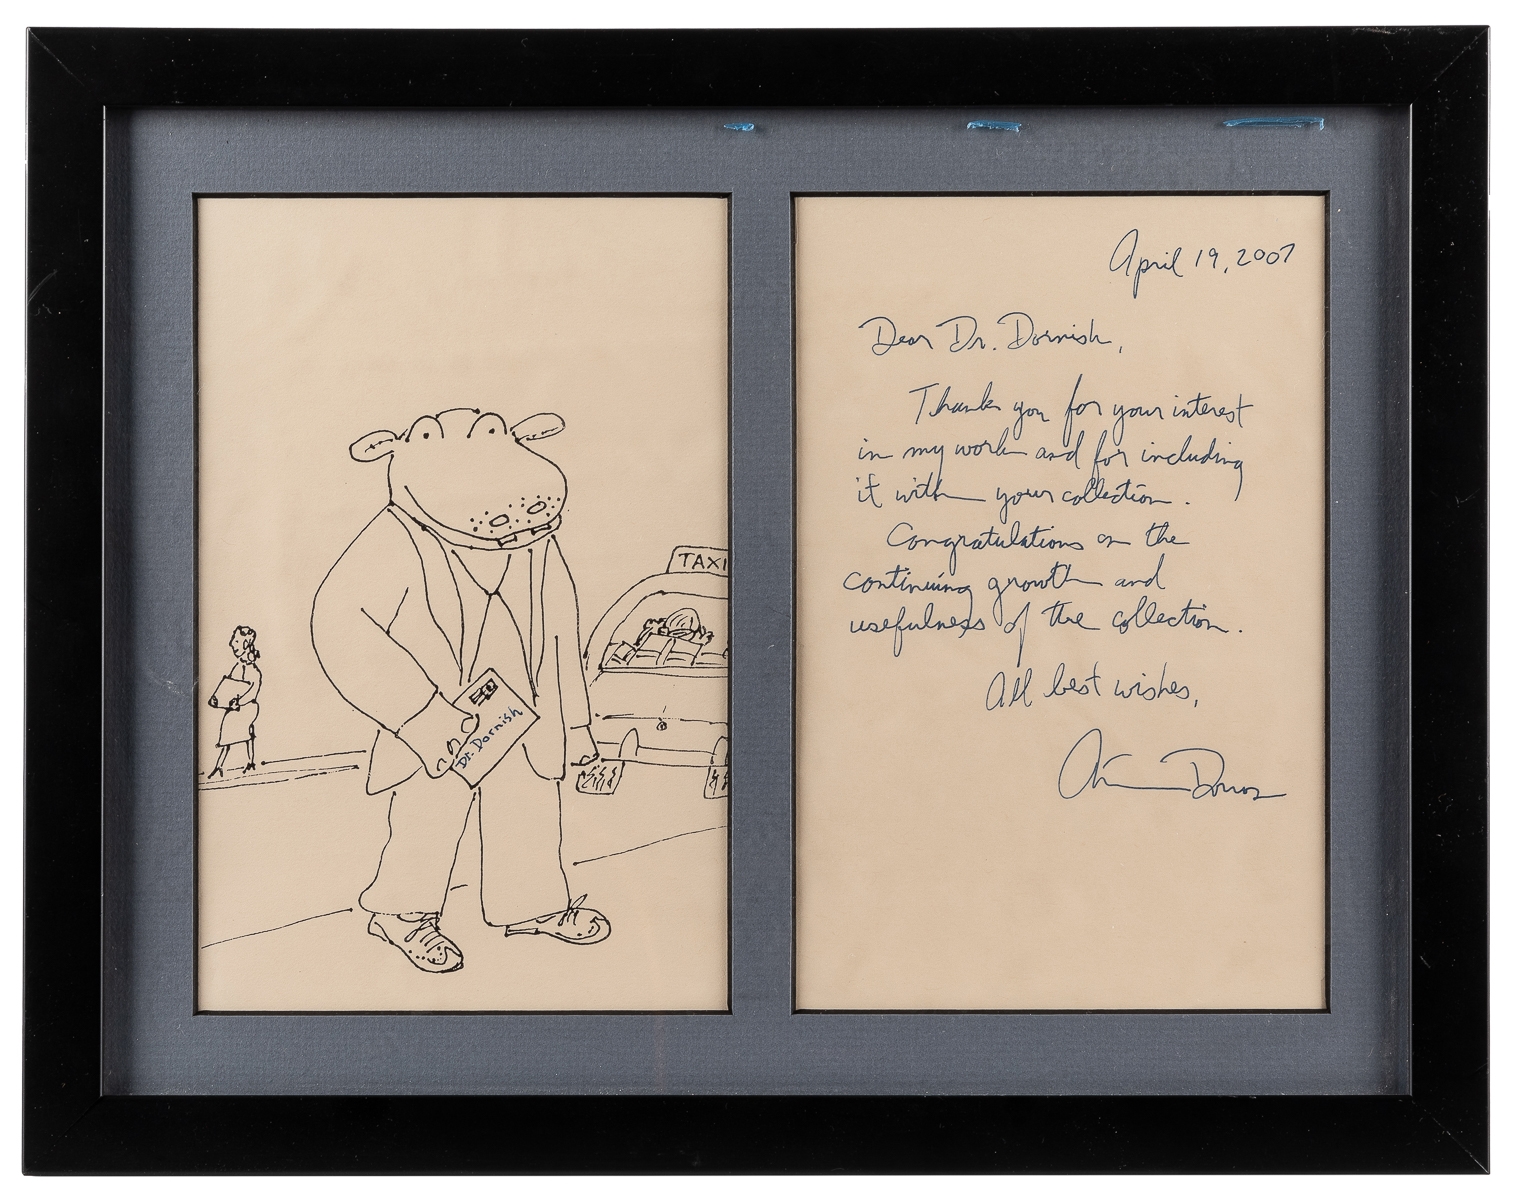 TAXI
Dr. Dornish
April 19, 2007
Dear Dr. Dornish,
Thank you for your interest
in my work and for including
it with your collection.
Congratulations on the
continuing growth and
usefulness of the collection.
All best wishes,